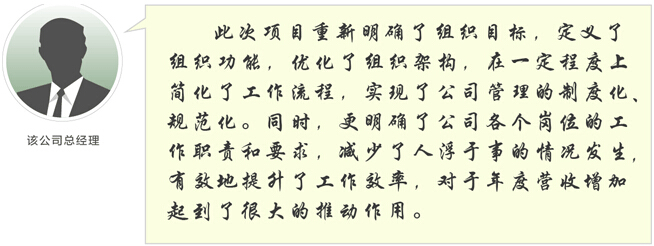 此次项目重新明确了组织目标，定义了
组织功能，优化了组织架构，在一定程度上
简化了工作流程，实现了公司管理的制度化、
规范化。同时，更明确了公司各个岗位的工
作职责和要求，减少了人浮于事的情况发生，
有效地提升了工作效率，对于年度营收增加
起到了很大的推动作用。
该公司总经理